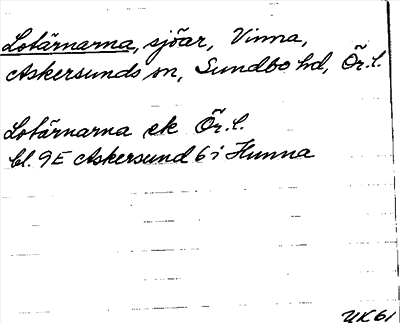 Lotärnarna, sjöar, Vinna,
Askersunds sn, Sundbo hd, Ör.l.
Lotärnarna ek Ör.l.
bl. 9E Askersund 6i Hunna
UK61